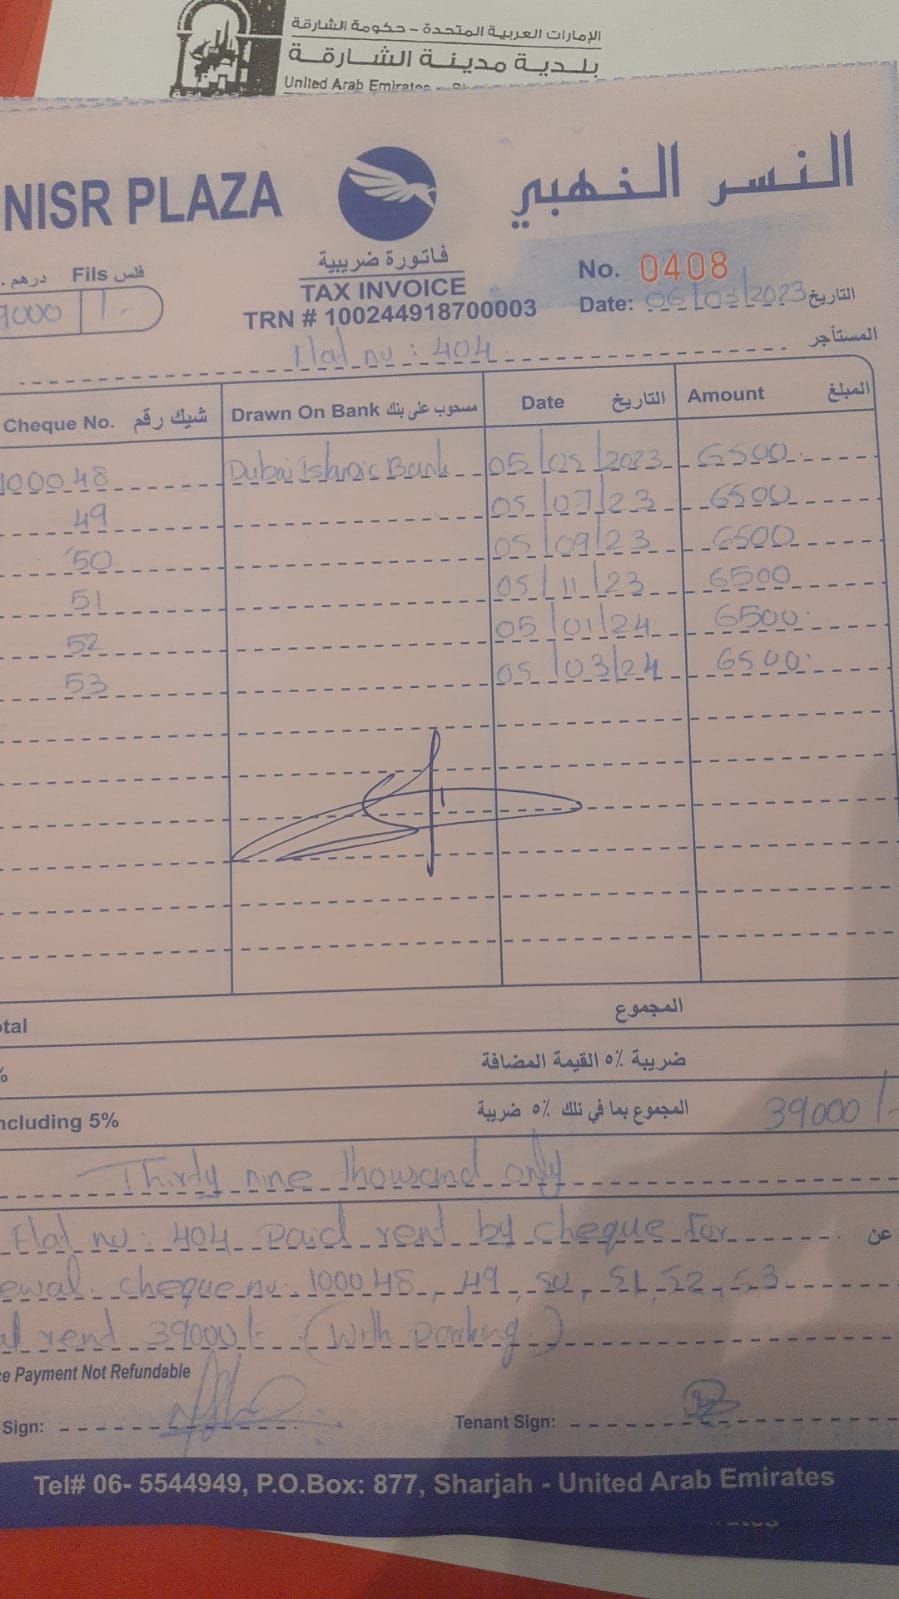 الإمارات العربية المتحدة - حكومة الشارقة
بلدية مدينة الشارقة
United Arab Emirates -
NISR PLAZA
النسر الذهبي
فاتورة ضريبية
TAX INVOICE
TRN # 100244918700003
درهم. Fils فلس
9000 /-
No. 0408
Date: 06/03/2023 التاريخ
Flat no : 404 المستأجر
Cheque No. شيك رقم Drawn On Bank مسحوب على بنك Date التاريخ Amount المبلغ
100048 Dubai Islamic Bank 05/05/2023 6500
49 05/07/23 6500
50 05/09/23 6500
51 05/11/23 6500
52 05/01/24 6500
53 05/03/24 6500
otal المجموع
% ضريبة ٥% القيمة المضافة
ncluding 5% المجموع بما في ذلك ٥% ضريبة 39000/-
Thirty nine thousand only
Flat no: 404 Paid rent by cheque For عن
ewal cheque no: 100048, 49, 50, 51, 52, 53
al rent 39000/- (with parking)
e Payment Not Refundable
Sign:
Tenant Sign:
Tel# 06- 5544949, P.O.Box: 877, Sharjah - United Arab Emirates